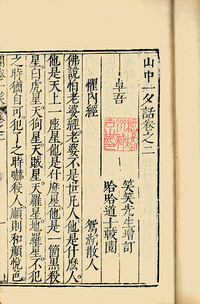 山中一夕話卷之二
卓吾
笑笑先生增訂
哈哈道士較閱
懼內經
鴛湖散人
佛說怕老婆經老婆不是世凡人他
是天上一座星他是什麽星他是一箇黑殺
星白虎星天狗星天賊星天羅星地羅星不犯
之時猶自可犯了之時嚇殺人顏則和顏悅色